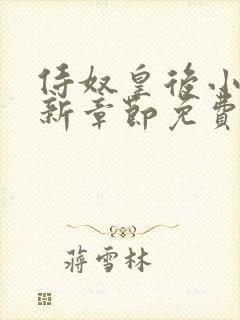 侍奴皇後小
新章節免費
蔣雪林